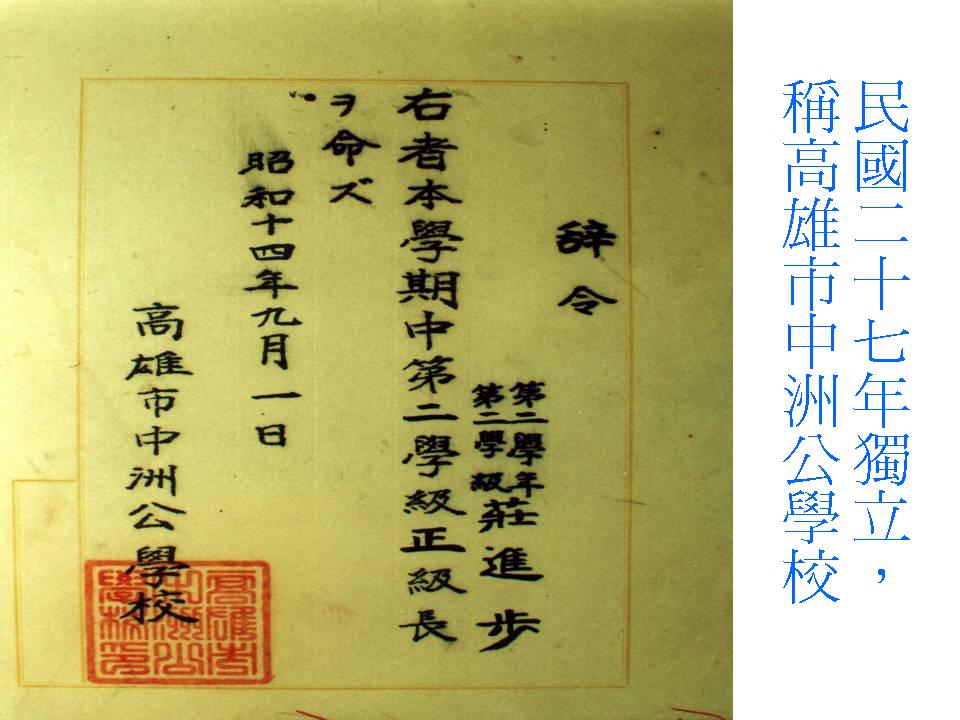 民國二十七年獨立，
稱高雄市中洲公學校
辞令
第二學年
第二學級
莊進步
右者本學期中第二學級正級長
ヲ命ズ
昭和十四年九月一日
高雄市中洲公學校
高雄市
中洲公
學校印